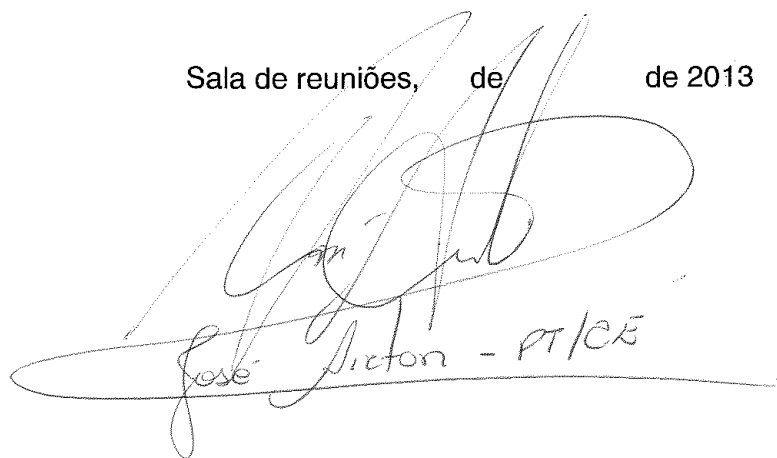 Sala de reuniões, de de 2013
José Airton - PT/CE